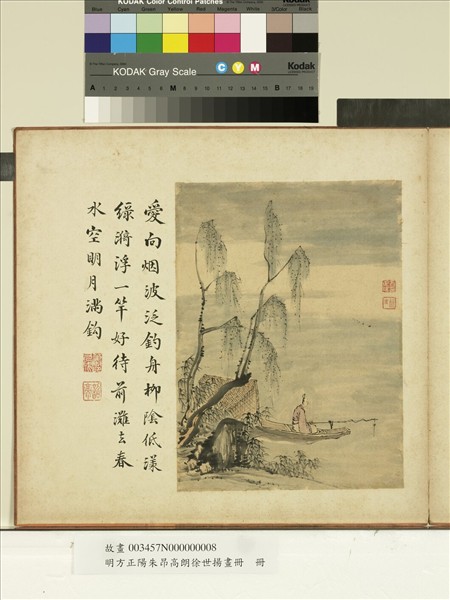 KODAK Color Control Patches
Blue Cyan Green Yellow Red Magenta White 3/Color Black
KODAK Gray Scale
C Y M
Kodak
A 1 2 3 4 5 6 M 8 9 10 11 12 13 14 15 B 17 18 19
愛向烟波泛釣舟柳陰低漾
綠漪浮一竿好待前灘去春
水空明月滿鈎
故畫 003457N000000008
明方正陽朱昂高朗徐世揚畫冊 冊